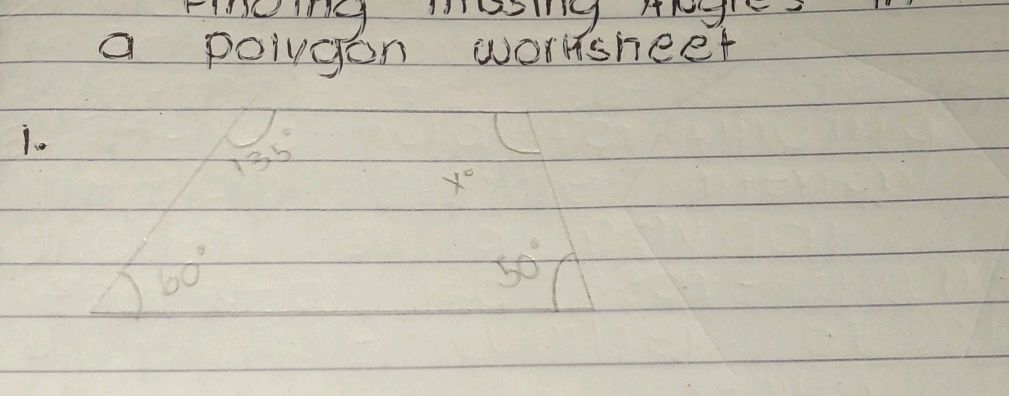 Finding missing Angles in
a polygon worksheet
1.
135°
x°
60°
50°